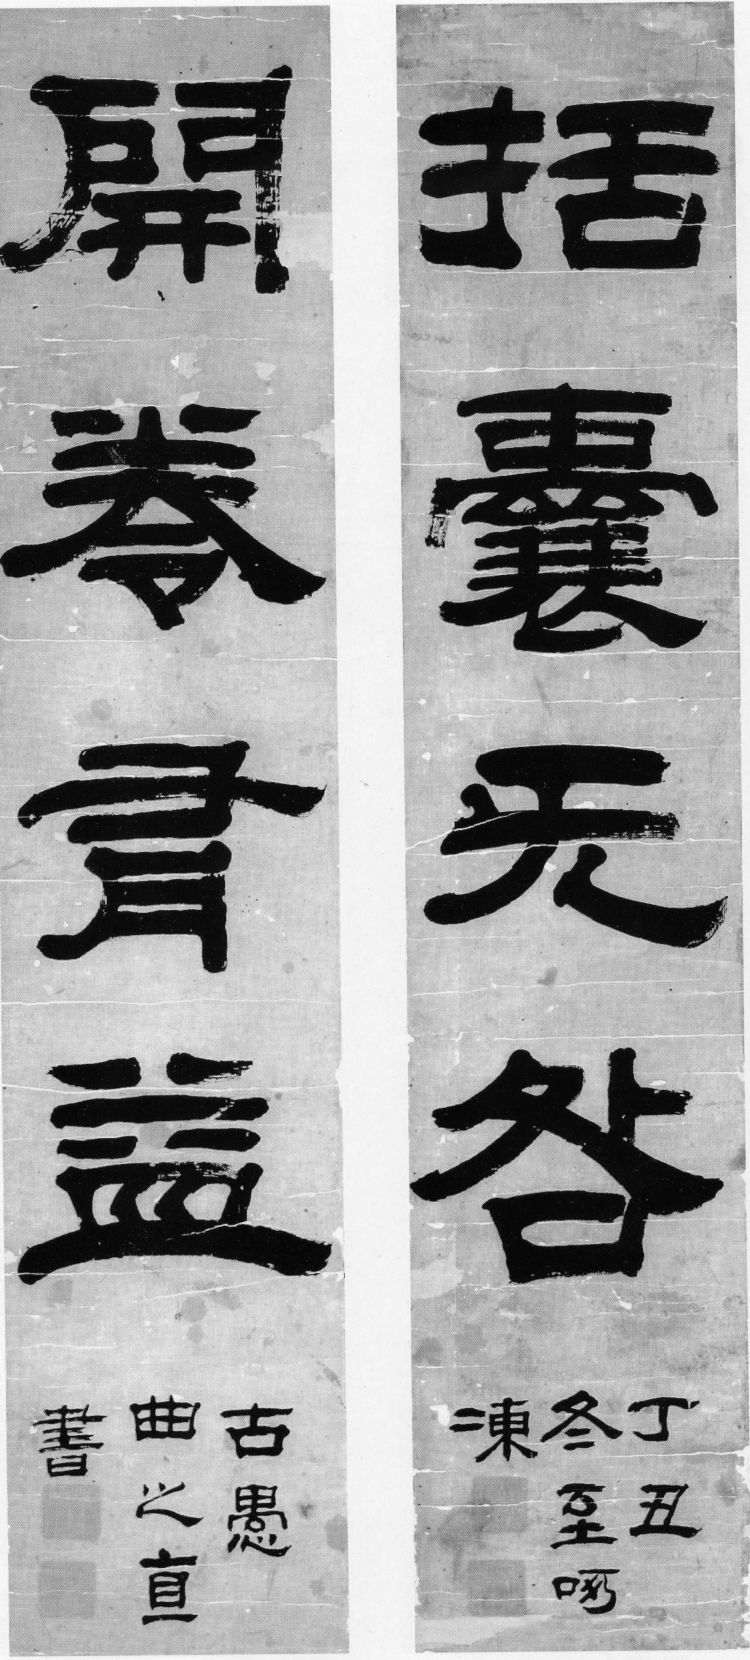 括囊无咎
丁丑
冬至呵
凍
開卷有益
古愚
曲之直
書